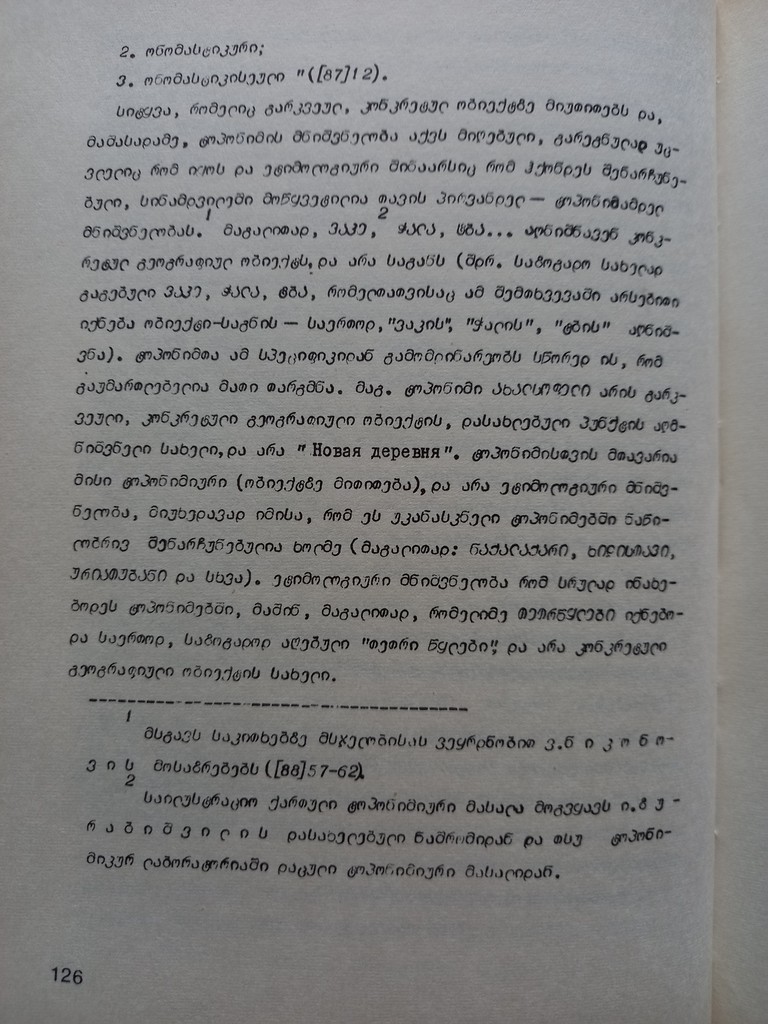 2. ონომასტიკური;
3. ონომასტიკისეული "([87]12).
სიტყვა, რომელიც გარკვეულ, კონკრეტულ ობიექტზე მიუთითებს და,
მაშასადამე, ტოპონიმის მნიშვნელობა აქვს მიღებული, გარეგნულად უც-
ვლელიც რომ იყოს და ეტიმოლოგიური შინაარსიც რომ ჰქონდეს შენარჩუნე-
ბული, სინამდვილეში მოწყვეტილია თავის პირვანდელ — ტოპონიმამდელ
მნიშვნელობას.1 მაგალითად, ვაკე,2 ჭალა, ტბა... აღნიშნავენ კონკ-
რეტულ გეოგრაფიულ ობიექტს, და არა საგანს (შდრ. საზოგადო სახელად
გაგებული ვაკე, ჭალა, ტბა, რომელთათვისაც ამ შემთხვევაში არსებითი
იქნება ობიექტი-საგნის — საერთოდ, "ვაკის", "ჭალის", "ტბის" აღნიშ-
ვნა). ტოპონიმთა ამ სპეციფიკიდან გამომდინარეობს სწორედ ის, რომ
გაუმართლებელია მათი თარგმნა. მაგ. ტოპონიმი ახალსოფელი არის გარკ-
ვეული, კონკრეტული გეოგრაფიული ობიექტის, დასახლებული პუნქტის აღმ-
ნიშვნელი სახელი, და არა "Новая деревня". ტოპონიმისთვის მთავარია
მისი ტოპონიმიური (ობიექტზე მითითება), და არა ეტიმოლოგიური მნიშვ-
ნელობა, მიუხედავად იმისა, რომ ეს უკანასკნელი ტოპონიმებში ნაწი-
ლობრივ შენარჩუნებულია ხოლმე (მაგალითად: ნაქალაქარი, ხიდისთავი,
ურიათუბანი და სხვა). ეტიმოლოგიური მნიშვნელობა რომ სრულად ინახე-
ბოდეს ტოპონიმებში, მაშინ, მაგალითად, რომელიმე თეთრწყლები იქნებო-
და საერთოდ, საზოგადოდ აღებული "თეთრი წყლები", და არა კონკრეტული
გეოგრაფიული ობიექტის სახელი.
1 მსგავს საკითხებზე მსჯელობისას ვეყრდნობით ვ. ნ ი კ ო ნ ო -
ვ ი ს მოსაზრებებს ([88]57-62).
2 საილუსტრაციო ქართული ტოპონიმიური მასალა მოგვყავს ი. ზ უ -
რ ა ბ ი შ ვ ი ლ ი ს დასახელებული ნაშრომიდან და თსუ ტოპონი-
მიკურ ლაბორატორიაში დაცული ტოპონიმიური მასალიდან.
126